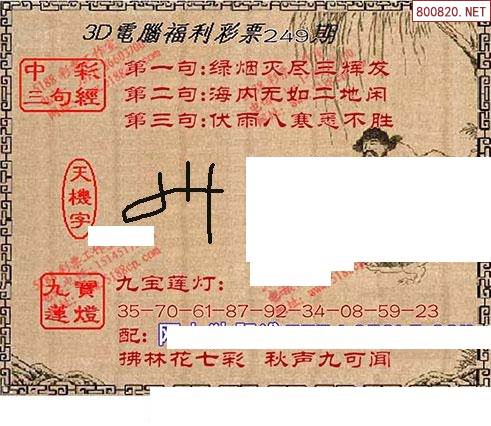 800820.NET
3D電腦福利彩票249期
中彩
三句經
第一句:绿烟灭尽三辉发
第二句:海内无如二地闲
第三句:伏雨八寒悉不胜
天機字
九寶
蓮燈
九宝莲灯:
35-70-61-87-92-34-08-59-23
配:
拂林花七彩 秋声九可闻